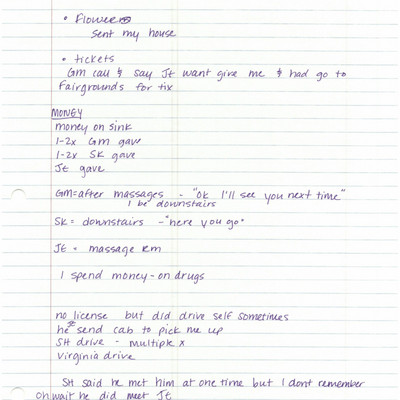 • Flowers
sent my house
• tickets
GM call & say JE want give me & had go to
Fairgrounds for tix
MONEY
money on sink
1-2x GM gave
1-2x SK gave
JE gave
GM = after massages - "ok I'll see you next time"
I be downstairs
SK = downstairs - "here you go"
JE = massage rm
I spend money - on drugs
no license but did drive self sometimes
he send cab to pick me up
SH drive - multiple x
Virginia drive
SH said he met him at one time but I dont remember
Oh wait he did meet JE